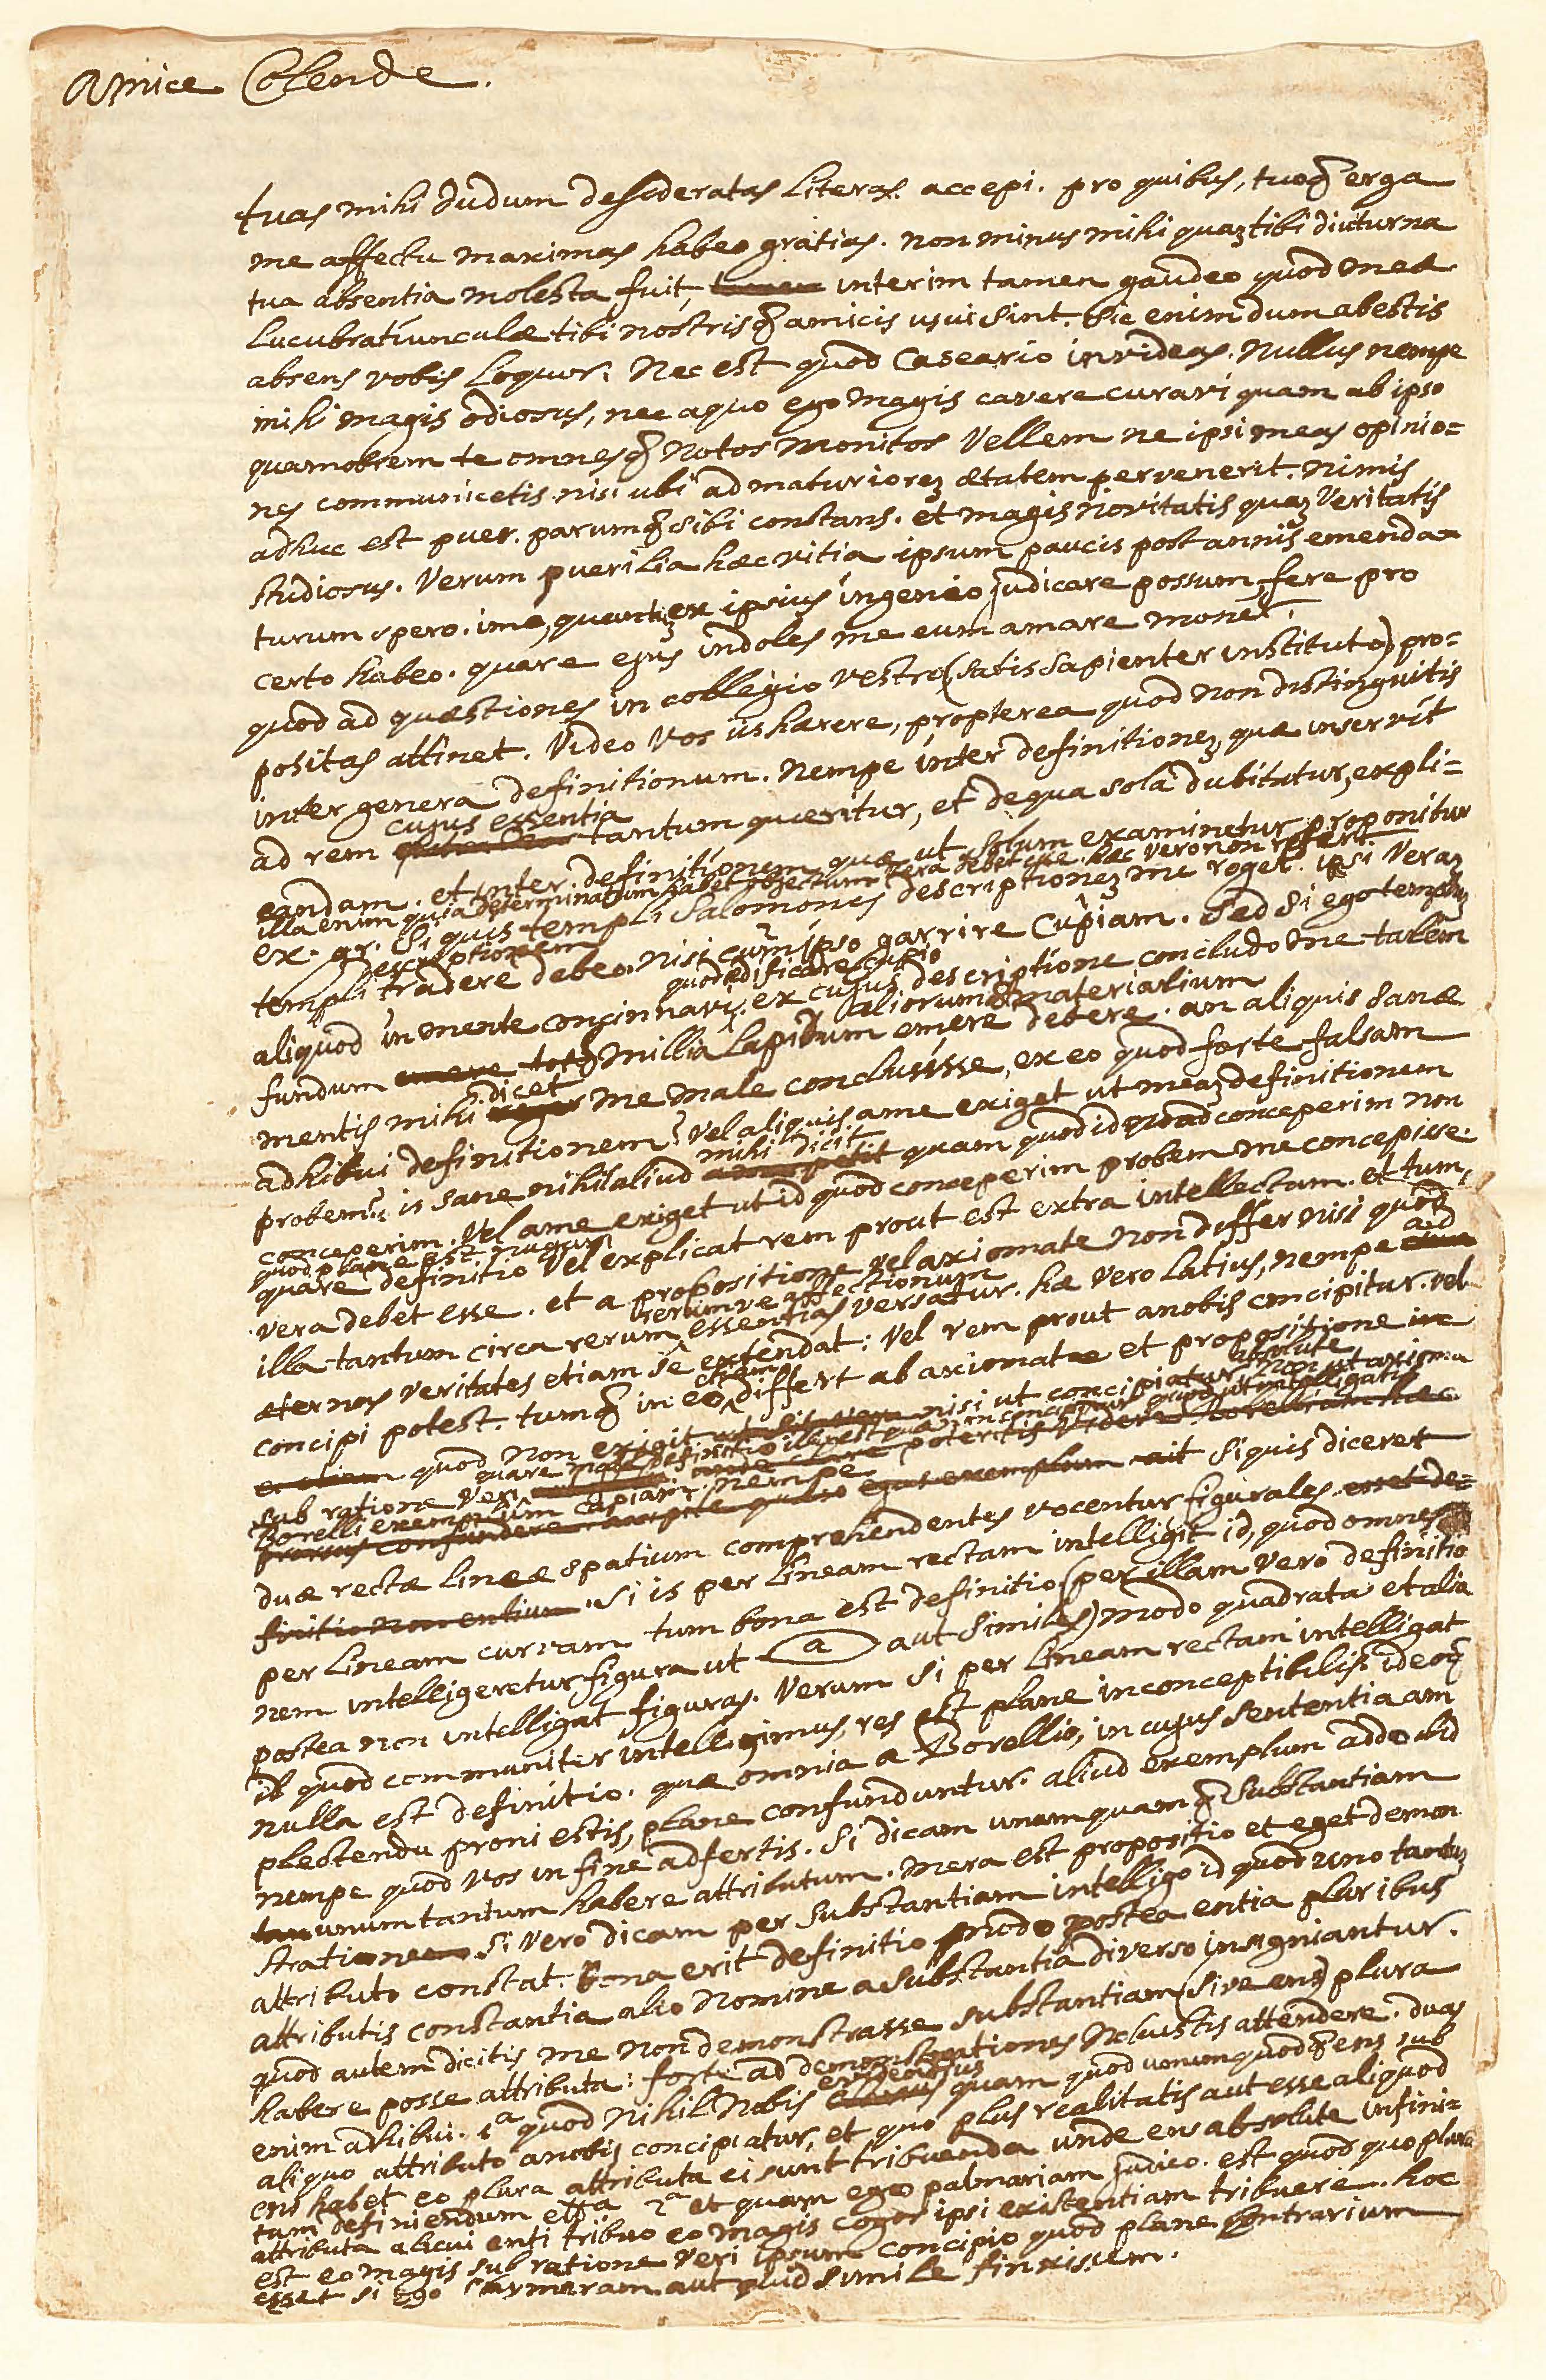 Amice Colende.
tuas mihi dudum desideratas literas accepi. pro quibus, tuoq erga
me affectu maximas habeo gratias. non minus mihi quaz tibi diuturna
tua absentia molesta fuit, interim tamen gaudeo quod meae
lucubratiunculae tibi nostrisq amicis usui sint. Sic enim dum abestis
absens vobis loquor. Nec est quod Caseario invideas. Nullus nempe
mihi magis odiosus, nec a quo ego magis cavere curavi quam ab ipso
quamobrem te omnesq notos monitos vellem ne ipsi meas opinio=
nes communicetis nisi ubi ad maturiorez aetatem pervenerit. nimis
adhuc est puer. parumq sibi constans. et magis novitatis quaz veritatis
studiosus. Verum puerilia haec vitia ipsum paucis post annis emenda
turum spero. imo, quantuz ex ipsius ingenio judicare possum, fere pro
certo habeo. quare ejus indoles me eum amare monet.
quod ad quaestiones in collegio vestro (satis sapienter instituto) pro=
positas attinet. Video vos iis haerere, propterea quod non distinguitis
inter genera definitionum. Nempe inter definitionez quae inservit
cujus essentia
ad rem tantum quaeritur, et de qua sola dubitatur, expli=
candam. et inter definitionem quae ut solum examinetur proponitur
illa enim quia determinatum habet objectum vera debet esse. haec vero non refert.
ex. gr. Si quis templi Salomonis descriptionez me roget. ipsi veraz
descriptionem
templi tradere debeo. nisi cum ipso garrire cupiam. Sed si ego templuz
quod aedificare cupio
aliquod in mente concinnavi. ex cujus descriptione concludo me talem
aliorumq materialium
fundum totq millia lapidum emere debere. an aliquis sanae
dicet
mentis mihi me male conclusisse, ex eo quod forte falsam
adhibui definitionem? vel aliquis a me exiget ut meaz definitionem
mihi dicit
probem? is sane nihil aliud quam quod id quod conceperim non
conceperim. Vel a me exiget ut id quod conceperim probem me concepisse.
quod plane est nugari
quare definitio vel explicat rem prout est extra intellectum. et tum
vera debet esse. et a propositione vel axiomate non differ nisi quod
rerumve affectionum
illa tantum circa rerum essentias versatur. hae vero latius, nempe ad
aeternas veritates etiam se extendat: Vel rem prout a nobis concipitur. vel
concipi potest. tumq in eo etiam differt ab axiomate et propositione
absolute
quod non exigit nisi ut concipiatur non ut axioma
sub ratione veri quare mala definitio illa est quae non concipitur quod ut intelligatis
Borelli exemplum capiam nempe ait si quis diceret
duae rectae lineae spatium comprehendentes vocentur figurales
si is per lineam rectam intelligit id, quod omnes
per lineam curvam tum bona est definitio (per illam vero definitio
nem intelligeretur figura ut a aut similes) modo quadrata et alia
postea non intelligat figuras. Verum si per lineam rectam intelligat
id quod communiter intelligimus, res est plane inconceptibilis ideoq
nulla est definitio. quae omnia a Borellio, in cujus sententiaam
plectendu proni estis, plane confunduntur. aliud exemplum addo id
nempe quod vos in fine adfertis. Si dicam unamquamq substantiam
unum tantum habere attributum. mera est propositio et eget demon
stratione. si vero dicam per substantiam intelligo id quod uno tantuz
attributo constat. bona erit definitio modo postea entia pluribus
attributis constantia alio nomine a substantia diverso insigniantur.
quod autem dicitis me non demonstrasse substantiam (sive ens) plura
habere posse attributa: forte ad demonstrationes noluistis attendere. duas
evidentius
enim adhibui. 1a quod nihil nobis quam quod unumquodq ens sub
aliquo attributo a nobis concipiatur, et quo plus realitatis aut esse aliquod
ens habet eo plura attributa ei sunt tribuenda unde ens absolute infini=
tum definiendum etca 2a et quam ego palmariam judico. est quod quo plura
attributa alicui enti tribuo eo magis cogor ipsi existentiam tribuere. hoc
est eo magis sub ratione veri ipsum concipio quod plane contrarium
esset si ego Chymeram aut quid simile finxissem.